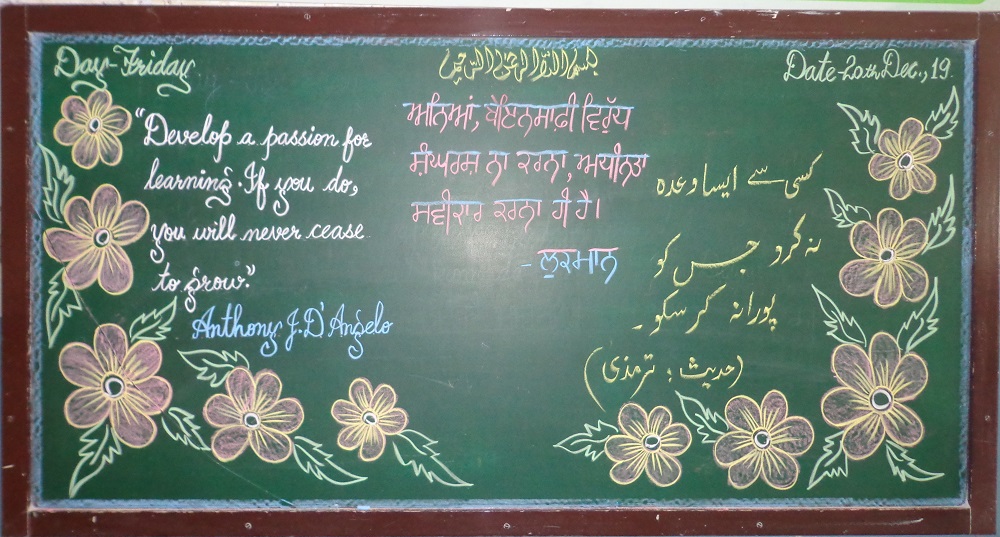 Day-Friday
بسم اللہ الرحمن الرحیم
Date-20th Dec., 19.
"Develop a passion for
learning. If you do,
you will never cease
to grow."
Anthony J. D'Angelo
ਅਨਿਆਂ, ਬੇਇਨਸਾਫ਼ੀ ਵਿਰੁੱਧ
ਸੰਘਰਸ਼ ਨਾ ਕਰਨਾ, ਅਧੀਨਤਾ
ਸਵੀਕਾਰ ਕਰਨਾ ਹੀ ਹੈ।
- ਲੁਕਮਾਨ
کسی سے ایسا وعدہ
نہ کرو جس کو
پورا نہ کر سکو۔
(حدیث : ترمذی)